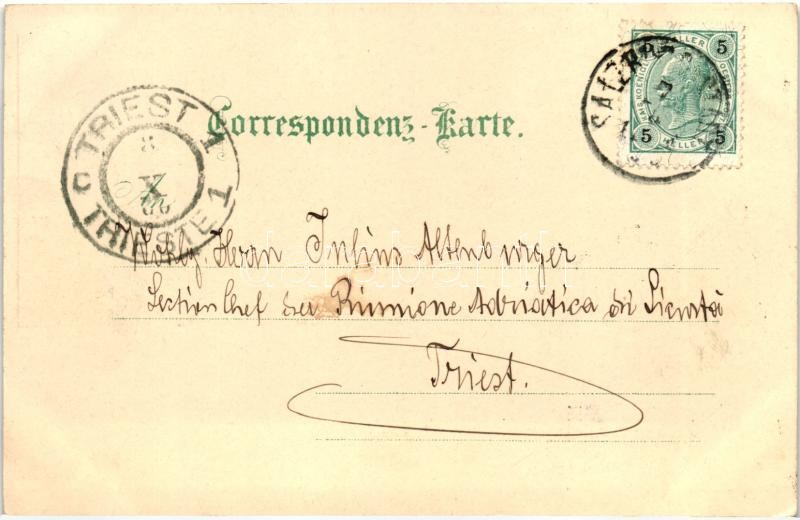 Correspondenz-Karte.
5 HELLER 5
5 HELLER 5
SALZB
TRIEST 1
8
X
00
TRIESTE 1
Wohlg. Herrn Julius Altenburger
Sectionschef der Riunione Adriatica di Sicurtà
Triest.